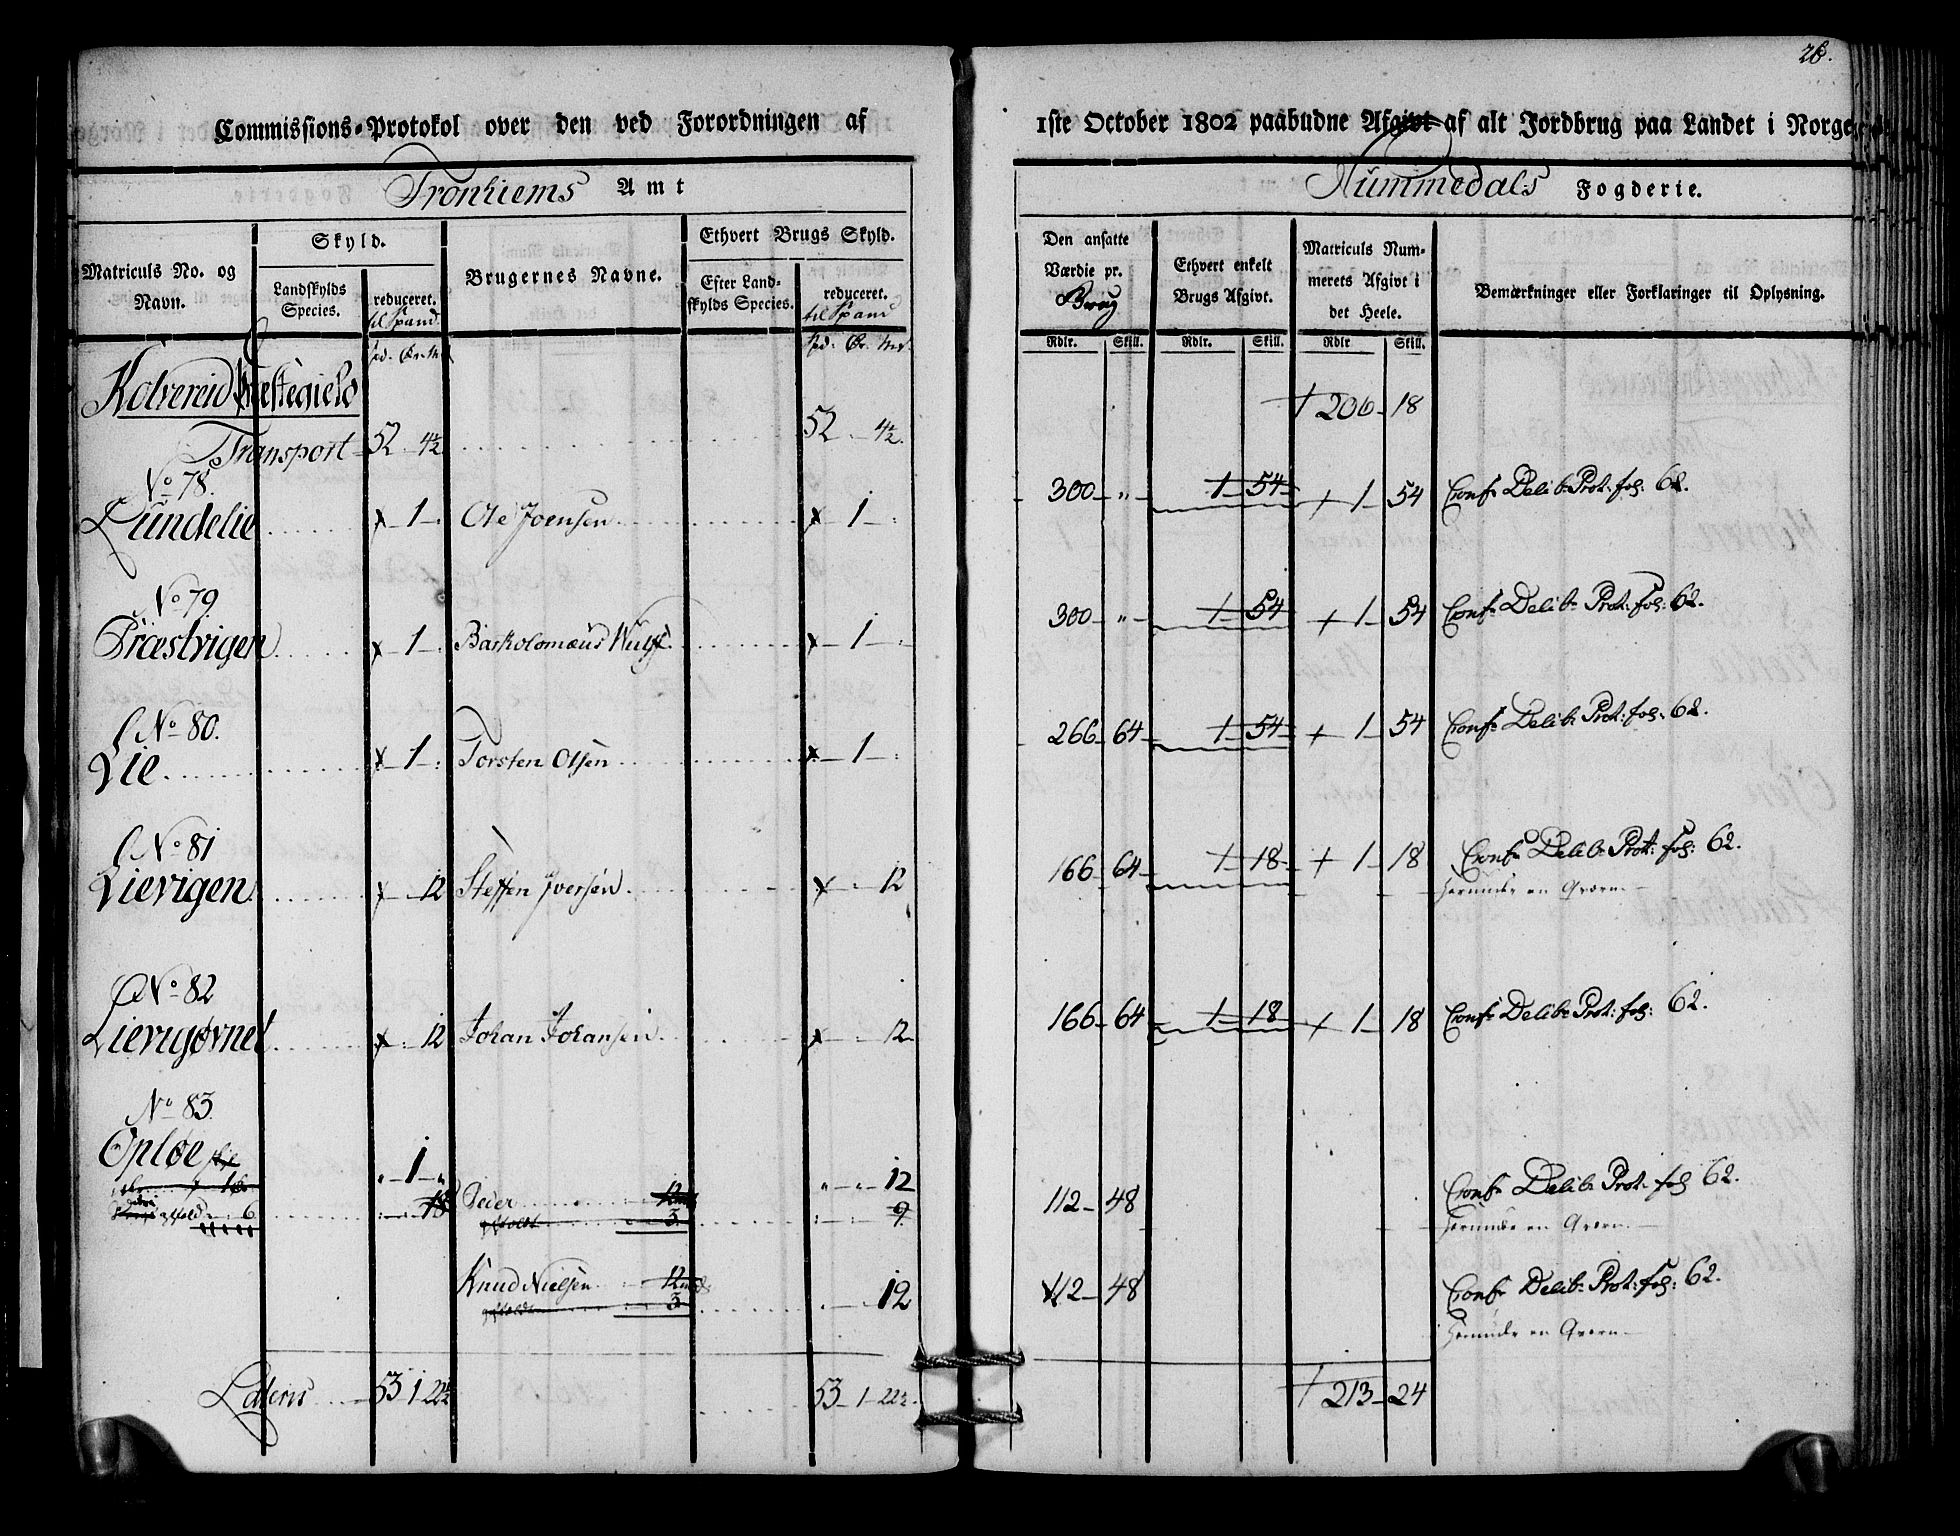 26.
Commissions-Protokol over den ved Forordningen af 1ste October 1802 paabudne Afgivt af alt Jordbrug paa Landet i Norge
Tronhiems Amt Nummedals Fogderie.
Matriculs No. og Navn.
Skyld.
Landskylds Species.
reduceret. til Spand
Brugernes Navne.
Ethvert Brugs Skyld.
Efter Landskylds Species.
reduceret. til Spand
Den ansatte Værdie pr. Brug
Ethvert enkelt Brugs Afgivt.
Matriculs Nummerets Afgivt i det Heele.
Bemærkninger eller Forklaringer til Oplysning.
Rdlr. Skill. Rdlr. Skill. Rdlr Skill.
Kolvereid Præstegield
206 18
Transport 52 4½ 52 4½
No 78.
Lundelie 1 Ole Joensen 1 300 " 1 54 1 54 Conf: Delib: Prot: fol: 62.
No 79
Præstvigen 1 Bartolomæus Wulff 1 300 " 1 54 1 54 Conf: Delib: Prot: fol: 62.
No 80.
Lie 1 Torsten Olsen 1 266 64 1 54 1 54 Conf: Delib: Prot: fol: 62.
No 81
Lievigen 12 Steffen Iversen 12 166 64 1 18 1 18 Conf: Delib: Prot: fol: 62.
herunder en Qværn
No 82
12 Johan Johansen 12 166 64 1 18 1 18 Conf: Delib: Prot: fol: 62.
No 83.
Opløe 1
18 Peier 12 112 48 Conf: Delib: Prot: fol 62.
3 9 herunder en Qværn
Knud Nielsen 12 12 112 48 Conf: Delib: Prot: fol: 62.
3 herunder en Qværn
Lateris 53 1 22½ 53 1 22½ 213 24